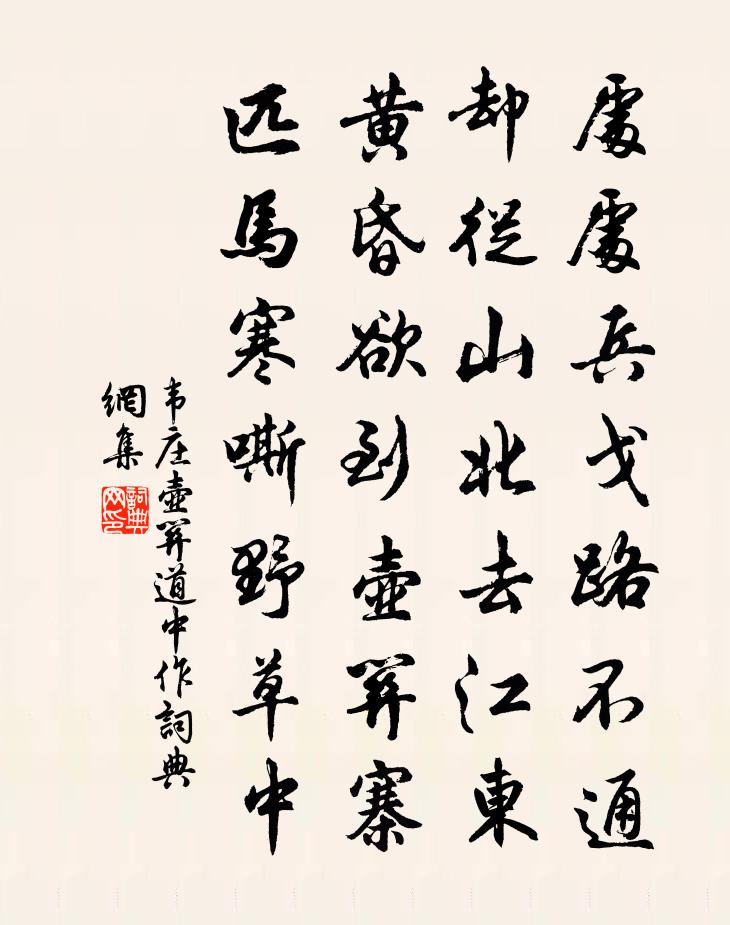 處處兵戈路不通
却從山北去江東
黄昏欲到壺関寨
匹馬寒嘶野草中
韦庄壺関道中作詞典
網集
詞典
网印